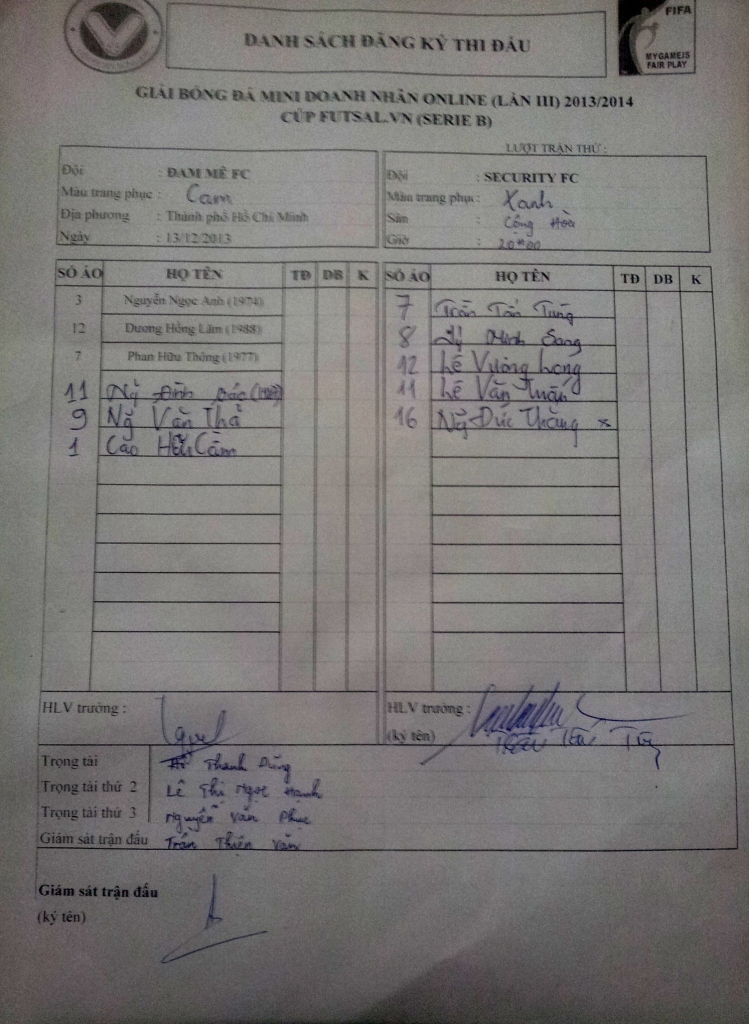 FIFA
MYGAMEIS
FAIR PLAY
DANH SÁCH ĐĂNG KÝ THI ĐẤU
GIẢI BÓNG ĐÁ MINI DOANH NHÂN ONLINE (LẦN III) 2013/2014
CÚP FUTSAL.VN (SERIE B)
LƯỢT TRẬN THỨ :
Đội : ĐAM MÊ FC
Màu trang phục : Cam
Địa phương : Thành phố Hồ Chí Minh
Ngày : 13/12/2013
Đội : SECURITY FC
Màu trang phục : Xanh
Sân : Cộng Hòa
Giờ : 20h00
SỐ ÁO HỌ TÊN TĐ DB K
3 Nguyễn Ngọc Anh (1974)
12 Dương Hồng Lâm (1988)
7 Phan Hữu Thông (1977)
11 Ng Đình
9 Ng Văn Thả
1 Cao Hữu Cầm
SỐ ÁO HỌ TÊN TĐ DB K
7 Trần Tấn Tùng
8 Lý Minh Sang
12 Lê Vương Long
11 Lê Văn Tuấn
16 Ng Đức Thắng x
HLV trưởng :
HLV trưởng :
(ký tên)
Trọng tài Thanh Dũng
Trọng tài thứ 2 Lê Thị Ngọc Hạnh
Trọng tài thứ 3 Nguyễn Văn Phúc
Giám sát trận đấu Trần Thiện Văn
Giám sát trận đấu
(ký tên)